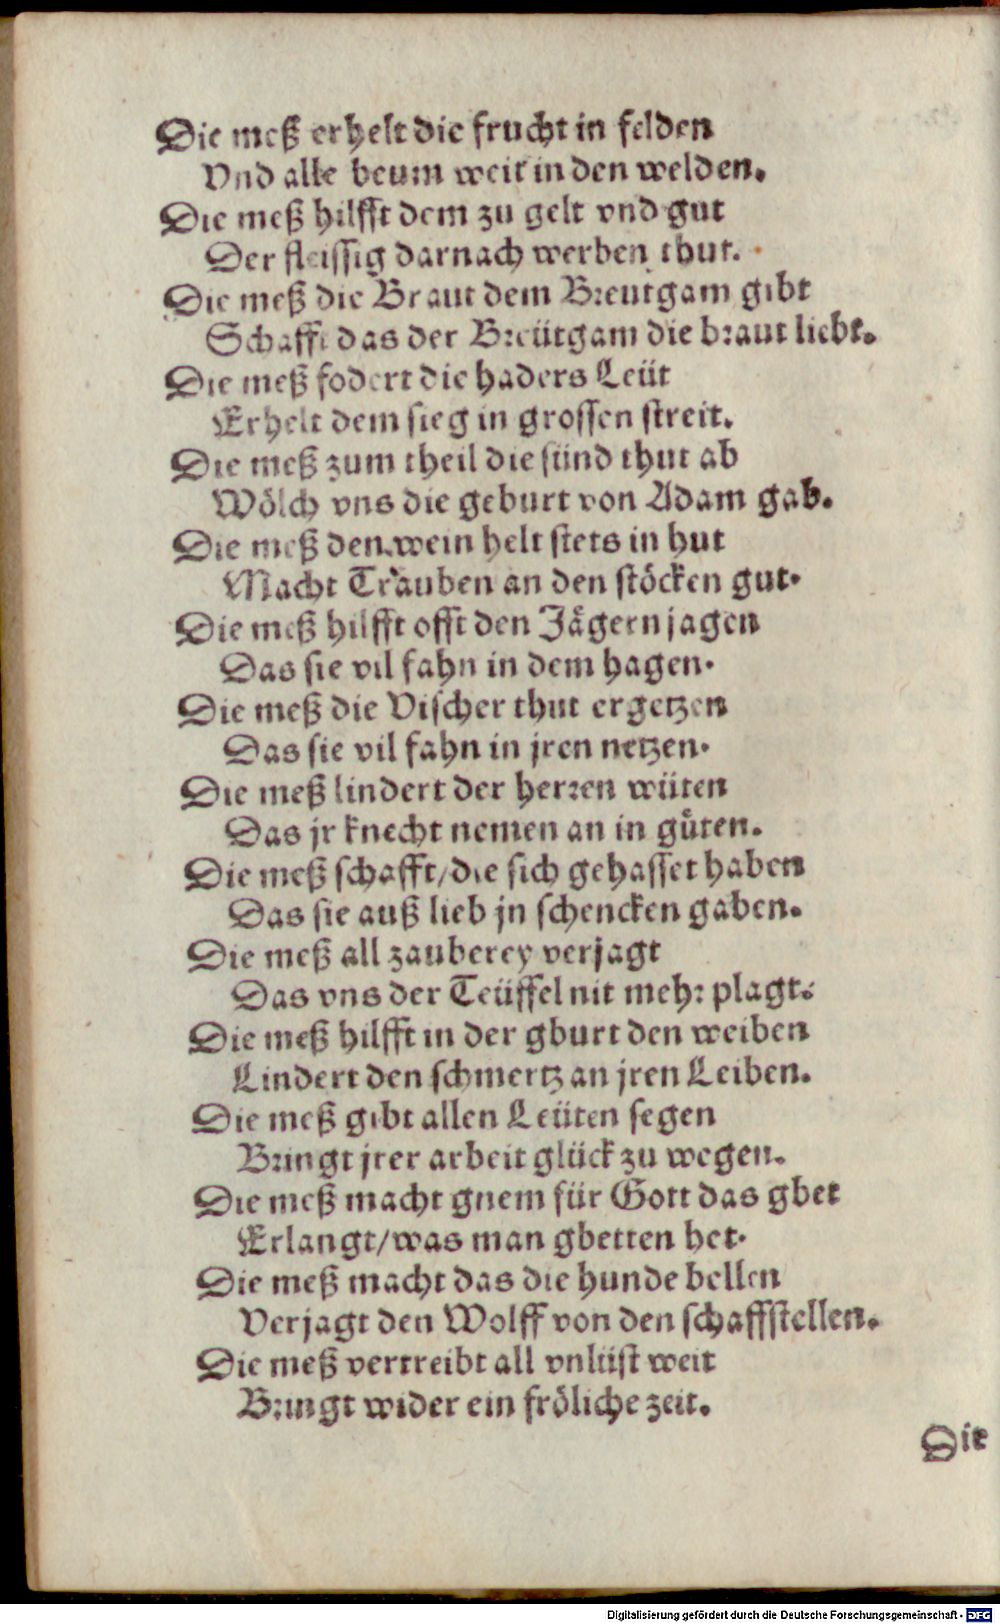 Die meß erhelt die frucht in felden
Vnd alle beum weit in den welden.
Die meß hilfft dem zu gelt vnd gut
Der fleissig darnach werben thut.
Die meß die Braut dem Breutgam gibt
Schafft das der Breütgam die braut liebt.
Die meß fodert die haders Leüt
Erhelt dem sieg in grossen streit.
Die meß zum theil die sünd thut ab
Wölch vns die geburt von Adam gab.
Die meß den wein helt stets in hut
Macht Trauben an den stöcken gut.
Die meß hilfft offt den Jägern jagen
Das sie vil fahn in dem hagen.
Die meß die Vischer thut ergetzen
Das sie vil fahn in jren netzen.
Die meß lindert der herren wüten
Das jr knecht nemen an in güten.
Die meß schafft/die sich gehasset haben
Das sie auß lieb jn schencken gaben.
Die meß all zauberey verjagt
Das vns der Teüffel nit mehr plagt.
Die meß hilfft in der gburt den weiben
Lindert den schmertz an jren Leiben.
Die meß gibt allen Leüten segen
Bringt jrer arbeit glück zu wegen.
Die meß macht gnem für Gott das gbet
Erlangt/was man gbetten het.
Die meß macht das die hunde bellen
Verjagt den Wolff von den schaffstellen.
Die meß vertreibt all vnlust weit
Bringt wider ein fröliche zeit.
Die
Digitalisierung gefördert durch die Deutsche Forschungsgemeinschaft - DFG